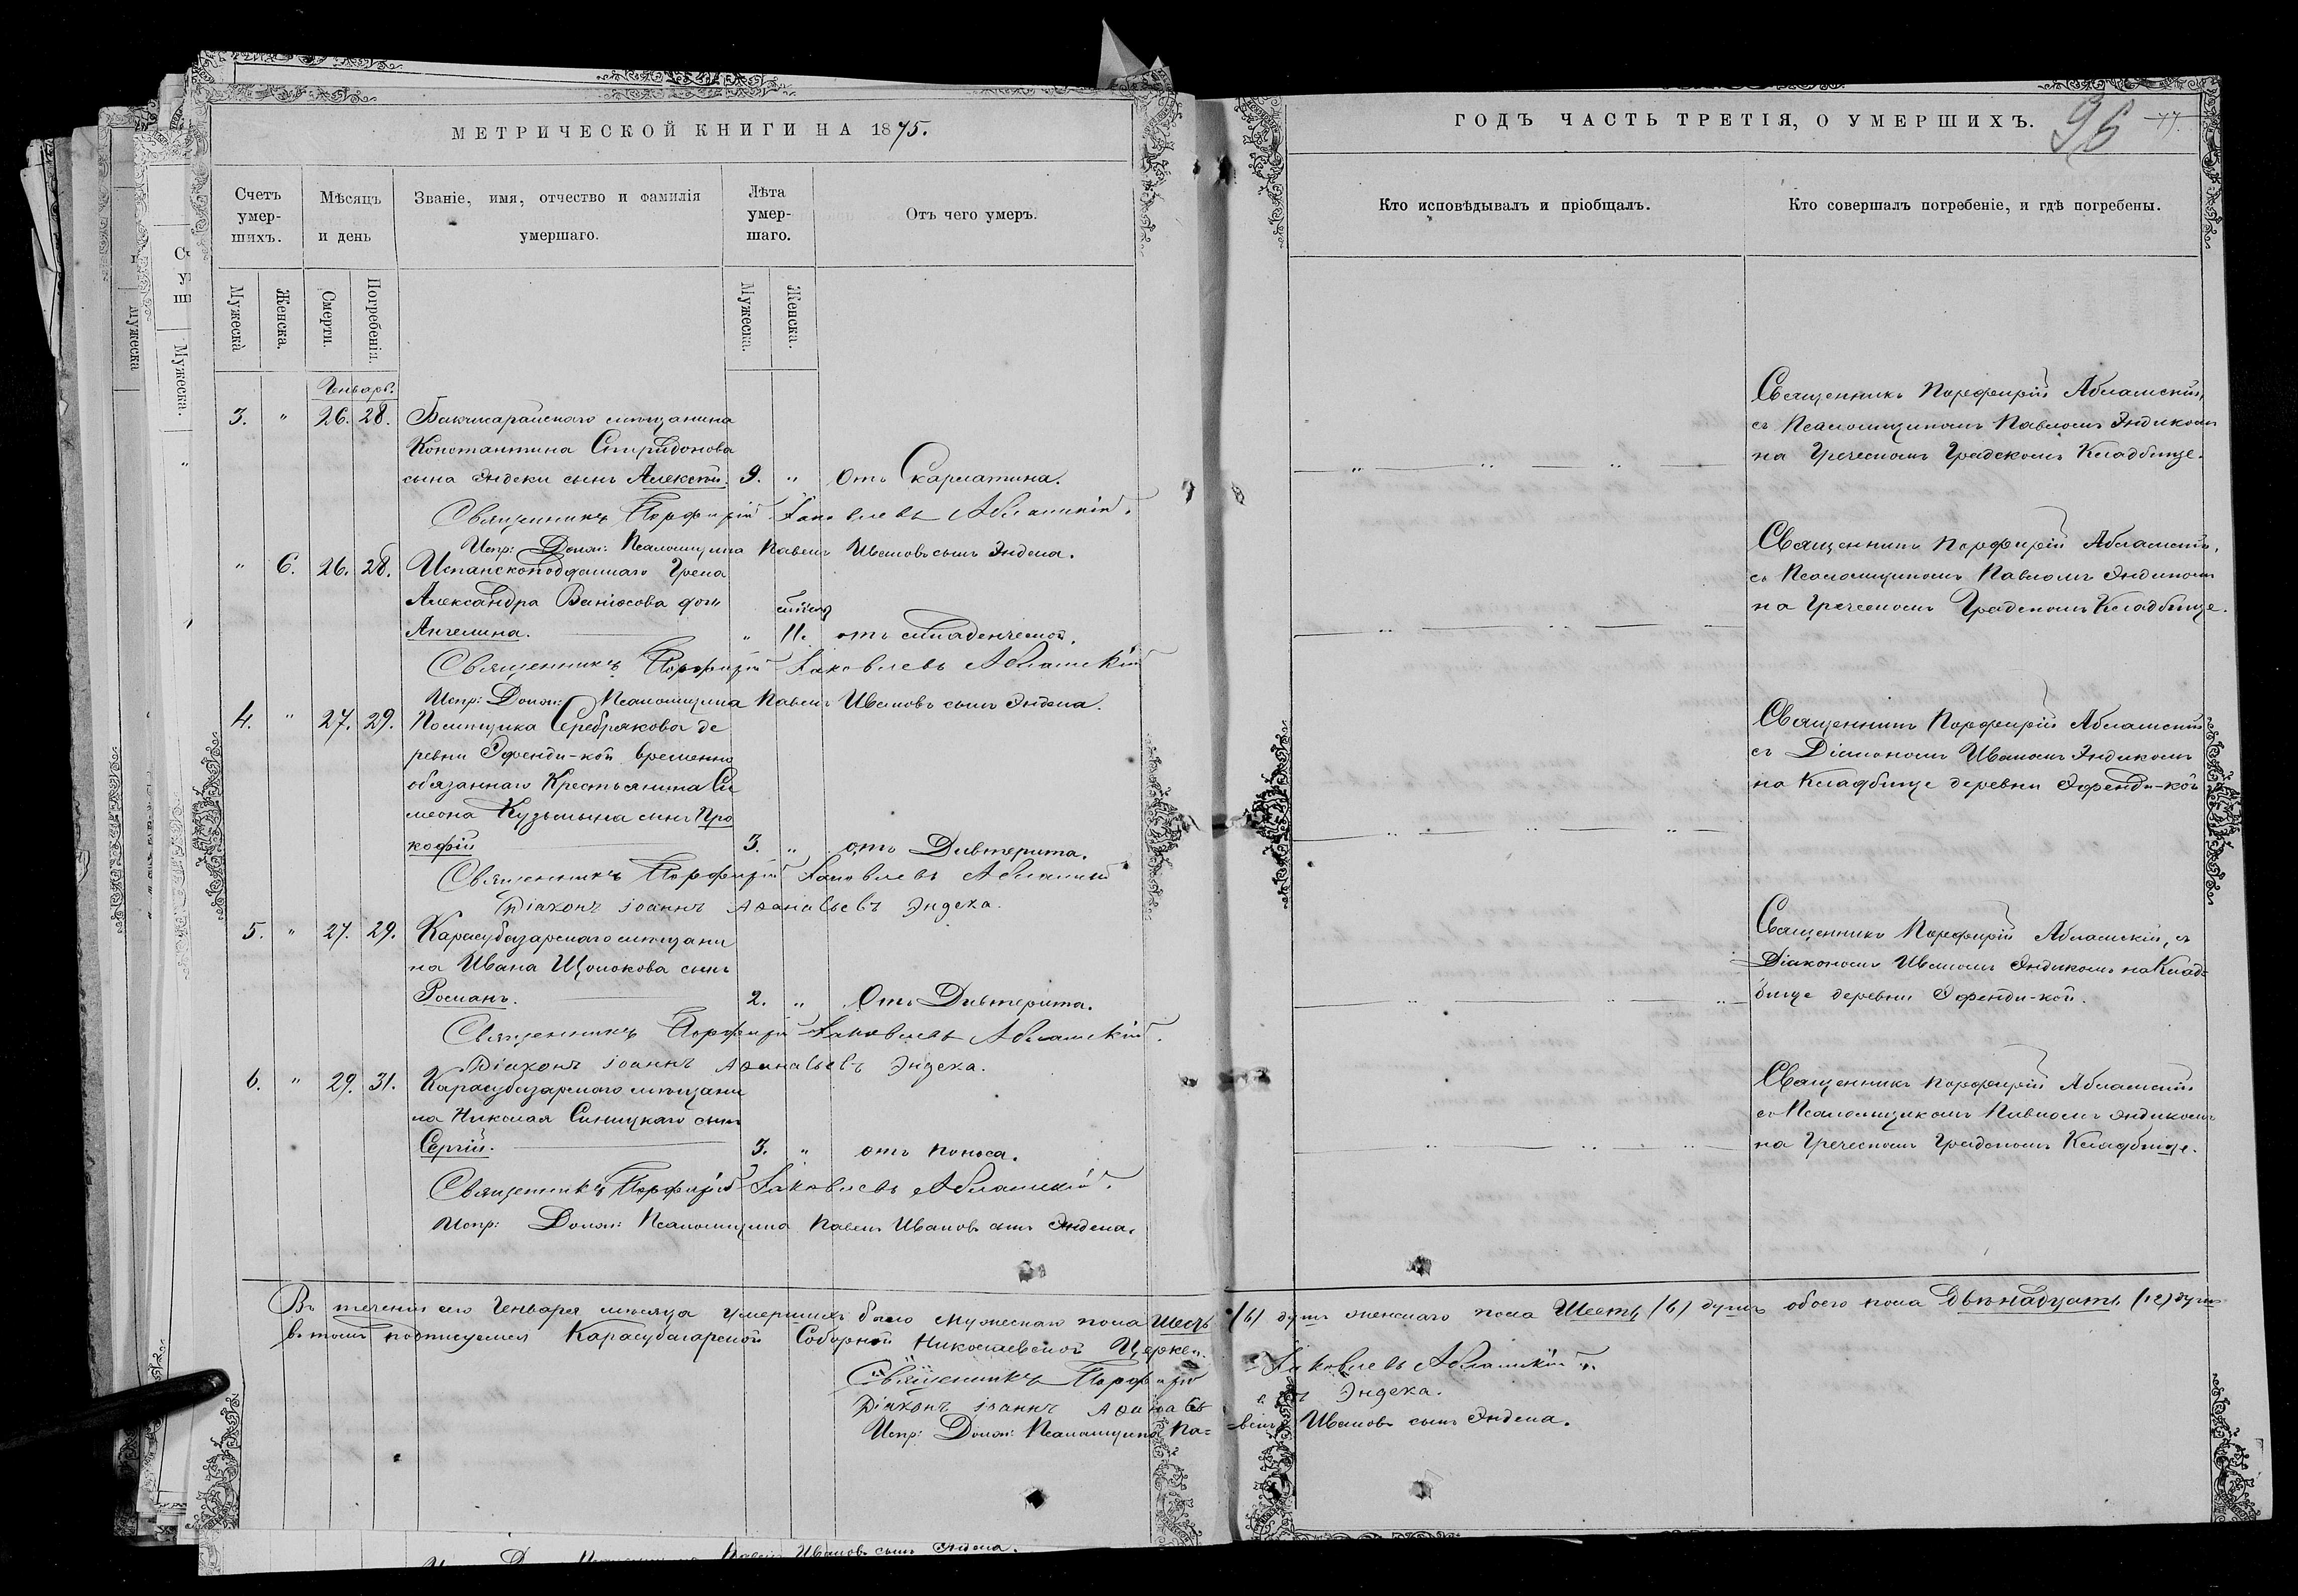 МЕТРИЧЕСКОЙ КНИГИ НА 1875.
Счетъ умер-шихъ.
Мѣсяцъ и день
Званіе, имя, отчество и фамилія умершаго.
Лѣта умер-шаго.
Отъ чего умеръ.
Мужеска
Женска.
Смерти.
Погребенія.
Мужеска.
Женска.
Генварь.
3. " 26. 28. Бахчисарайскаго мѣщанина
Константина Спиридонова
сына Эндеки сынъ Алексѣй. 9. " Отъ Скарлатина.
Священникъ Порфирій Іаковлевъ
Испр: Долж: Псаломщика Павелъ Ивановъ сынъ Эндека.
" 6. 26. 28. Испанскоподданнаго Грека
Александра Ванюсова дочь
Ангелина. " 11. отъ младенческой.
Священникъ Порфирій Іаковлевъ
Испр: Долж: Псаломщика Павелъ Ивановъ сынъ Эндека.
4. " 27. 29. Помѣщика Серебрякова де
ревни Эфенди-кой временно
обязаннаго Крестьянина Си
меона Кузьмына сынъ Про
кофій 3. " отъ Дивтерита.
Священникъ Порфирій Іаковлевъ
Діаконъ Іоаннъ Аѳанасьевъ Эндека.
5. " 27. 29. Карасубазарскаго мѣщани
на Ивана Щолокова сынъ
Романъ. 2. " Отъ Дивтерита.
Священникъ Порфирій Іаковлевъ
Діаконъ Іоаннъ Аѳанасьевъ Эндека.
6. " 29. 31. Карасубазарскаго мѣщани
на Николая Синицкаго сынъ
Сергій. 3. " отъ поноса.
Священникъ Порфирій Іаковлевъ
Испр: Долж: Псаломщика Павелъ Ивановъ сынъ Эндека.
Въ теченіи сего Генваря мѣсяца умершихъ было мужескаго пола Шесть /6/ душъ женскаго пола Шесть /6/ душъ обоего пола Двѣнадцать (12) душъ
въ томъ подписуемся Карасубазарской Соборной Николаевской Церкви.
Священникъ Порфирій Іаковлевъ
Діаконъ Іоаннъ Аѳанасьевъ Эндека.
Испр: Долж: Псаломщика Павелъ Ивановъ сынъ Эндека.
Ивановъ сынъ Эндека.
ГОДЪ ЧАСТЬ ТРЕТІЯ, О УМЕРШИХЪ.
96
Кто исповѣдывалъ и пріобщалъ.
Кто совершалъ погребеніе, и гдѣ погребены.
Священникъ Порфирій
съ Псаломщикомъ Павломъ Эндикомъ
на Греческомъ Градскомъ Кладбище.
Священникъ Порфирій
съ Псаломщикомъ Павломъ Эндикомъ
на Греческомъ Градскомъ Кладбище.
Священникъ Порфирій
съ Діакономъ Иваномъ Эндикомъ
на Кладбище деревни Эфенди-кой
Священникъ Порфирій съ
Діакономъ Иваномъ Эндикомъ на Клад=
бище деревни Эфенди-кой.
Священникъ Порфирій
съ Псаломщикомъ Павломъ Эндикомъ
на Греческомъ Градскомъ Кладбище.